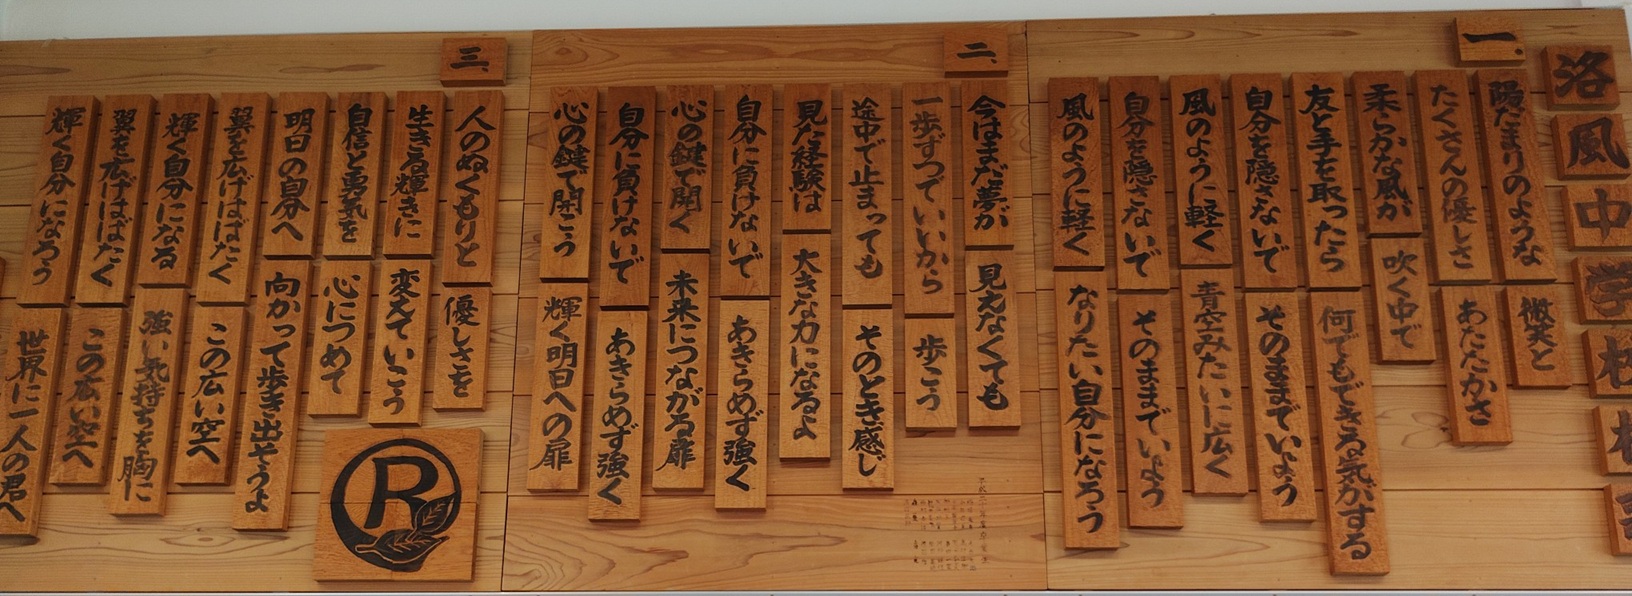 洛風中学校校歌
一、
陽だまりのような 微笑と
たくさんの優しさ あたたかさ
柔らかな風が 吹く中で
友と手を取ったら 何でもできる気がする
自分を隠さないで そのままでいよう
風のように軽く 青空みたいに広く
自分を隠さないで そのままでいよう
風のように軽く なりたい自分になろう
二、
今はまだ夢が 見えなくても
一歩ずつでいいから 歩こう
途中で止まっても そのとき感じ
見た経験は 大きな力になるよ
自分に負けないで あきらめず強く
心の鍵で開く 未来につながる扉
自分に負けないで あきらめず強く
心の鍵で開こう 輝く明日への扉
三、
人のぬくもりと 優しさを
生きる輝きに 変えていこう
自信と勇気を 心につめて
明日の自分へ 向かって歩き出そうよ
翼を広げはばたく この広い空へ
輝く自分になる 強い気持ちを胸に
翼を広げはばたく この広い空へ
輝く自分になろう 世界に一人の君へ
R